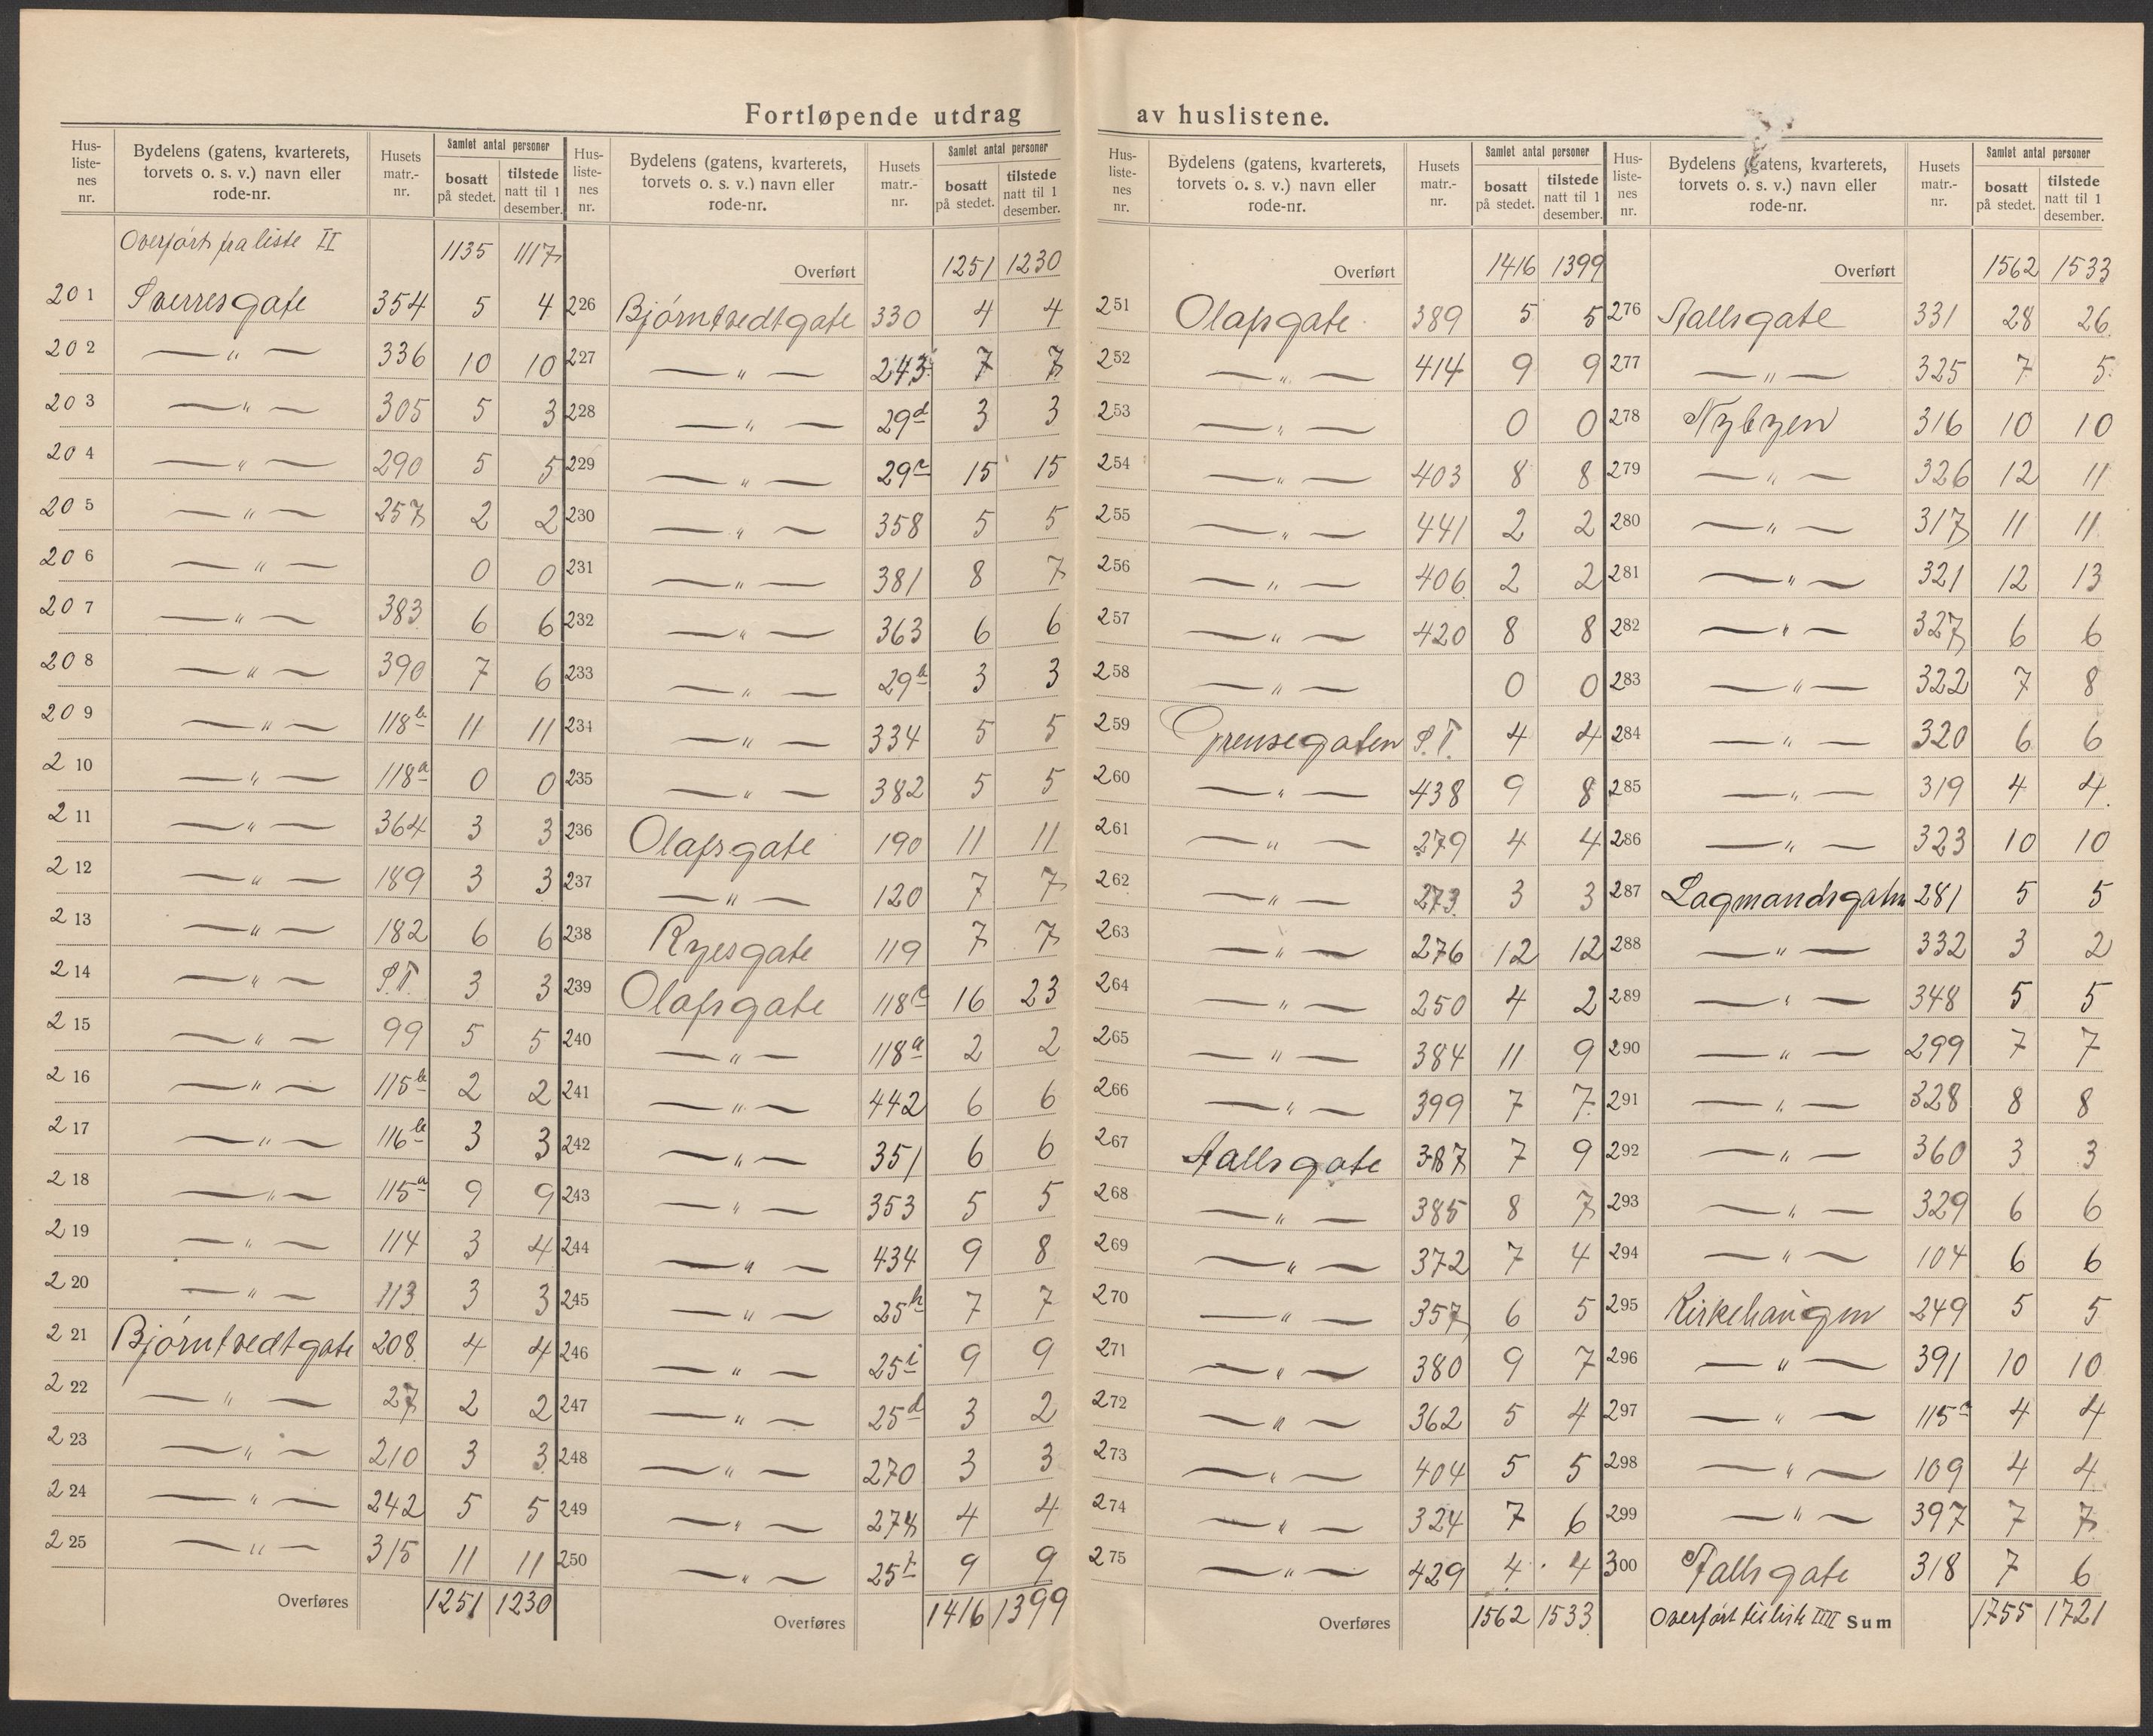 Fortløpende utdrag av huslistene.
Hus-liste-nes nr. | Bydelens (gatens, kvarterets, torvets o. s. v.) navn eller rode-nr. | Husets matr.-nr. | Samlet antal personer bosatt på stedet. | tilstede natt til 1 desember.
Overført fra liste II 1135 1117
201 Sverresgate 354 5 4
202 — " — 336 10 10
203 — " — 305 5 3
204 — " — 290 5 5
205 — " — 257 2 2
206 — " — 0 0
207 — " — 383 6 6
208 — " — 390 7 6
209 — " — 118b 11 11
210 — " — 118a 0 0
211 — " — 364 3 3
212 — " — 189 3 3
213 — " — 182 6 6
214 — " — S.T. 3 3
215 — " — 99 5 5
216 — " — 115b 2 2
217 — " — 116b 3 3
218 — " — 115a 9 9
219 — " — 114 3 4
220 — " — 113 3 3
221 Bjørntvedtgate 208 4 4
222 — " — 27 2 2
223 — " — 210 3 3
224 — " — 242 5 5
225 — " — 315 11 11
Overføres 1251 1230
Hus-liste-nes nr. | Bydelens (gatens, kvarterets, torvets o. s. v.) navn eller rode-nr. | Husets matr.-nr. | Samlet antal personer bosatt på stedet. | tilstede natt til 1 desember.
Overført 1251 1230
226 Bjørntvedtgate 330 4 4
227 — " — 243 7 7
228 — " — 29d 3 3
229 — " — 29 15 15
230 — " — 358 5 5
231 — " — 381 8 7
232 — " — 363 6 6
233 — " — 29 3 3
234 — " — 334 5 5
235 — " — 382 5 5
236 Olafsgate 190 11 11
237 — " — 120 7 7
238 Ryesgate 119 7 7
239 Olafsgate 118 16 23
240 — " — 118a 2 2
241 — " — 442 6 6
242 — " — 351 6 6
243 — " — 353 5 5
244 — " — 434 9 8
245 — " — 25h 7 7
246 — " — 25i 9 9
247 — " — 25d 3 2
248 — " — 270 3 3
249 — " — 274 4 4
250 — " — 25 9 9
Overføres 1416 1399
Hus-liste-nes nr. | Bydelens (gatens, kvarterets, torvets o. s. v.) navn eller rode-nr. | Husets matr.-nr. | Samlet antal personer bosatt på stedet. | tilstede natt til 1 desember.
Overført 1416 1399
251 Olafsgate 389 5 5
252 — " — 414 9 9
253 — " — 0 0
254 — " — 403 8 8
255 — " — 441 2 2
256 — " — 406 2 2
257 — " — 420 8 8
258 — " — 0 0
259 Grensegaten S.T. 4 4
260 — " — 438 9 8
261 — " — 279 4 4
262 — " — 273 3 3
263 — " — 276 12 12
264 — " — 250 4 2
265 — " — 384 11 9
266 — " — 399 7 7
267 Hallsgate 387 7 9
268 — " — 385 8 7
269 — " — 372 7 4
270 — " — 357 6 5
271 — " — 380 9 7
272 — " — 362 5 4
273 — " — 404 5 5
274 — " — 324 7 6
275 — " — 429 4 4
Overføres 1562 1533
Hus-liste-nes nr. | Bydelens (gatens, kvarterets, torvets o. s. v.) navn eller rode-nr. | Husets matr.-nr. | Samlet antal personer bosatt på stedet. | tilstede natt til 1 desember.
Overført 1562 1533
276 Hallsgate 331 28 26
277 — " — 325 7 5
278 Nybyen 316 10 10
279 — " — 326 12 11
280 — " — 317 11 11
281 — " — 321 12 13
282 — " — 327 6 6
283 — " — 322 7 8
284 — " — 320 6 6
285 — " — 319 4 4
286 — " — 323 10 10
287 Lagmandsgaten 281 5 5
288 — " — 332 3 2
289 — " — 348 5 5
290 — " — 299 7 7
291 — " — 328 8 8
292 — " — 360 3 3
293 — " — 329 6 6
294 — " — 104 6 6
295 Kirkehaugen 249 5 5
296 — " — 391 10 10
297 — " — 115 4 4
298 — " — 109 4 4
299 — " — 397 7 7
300 Hallsgate 318 7 6
Overført til liste IIII Sum 1755 1721